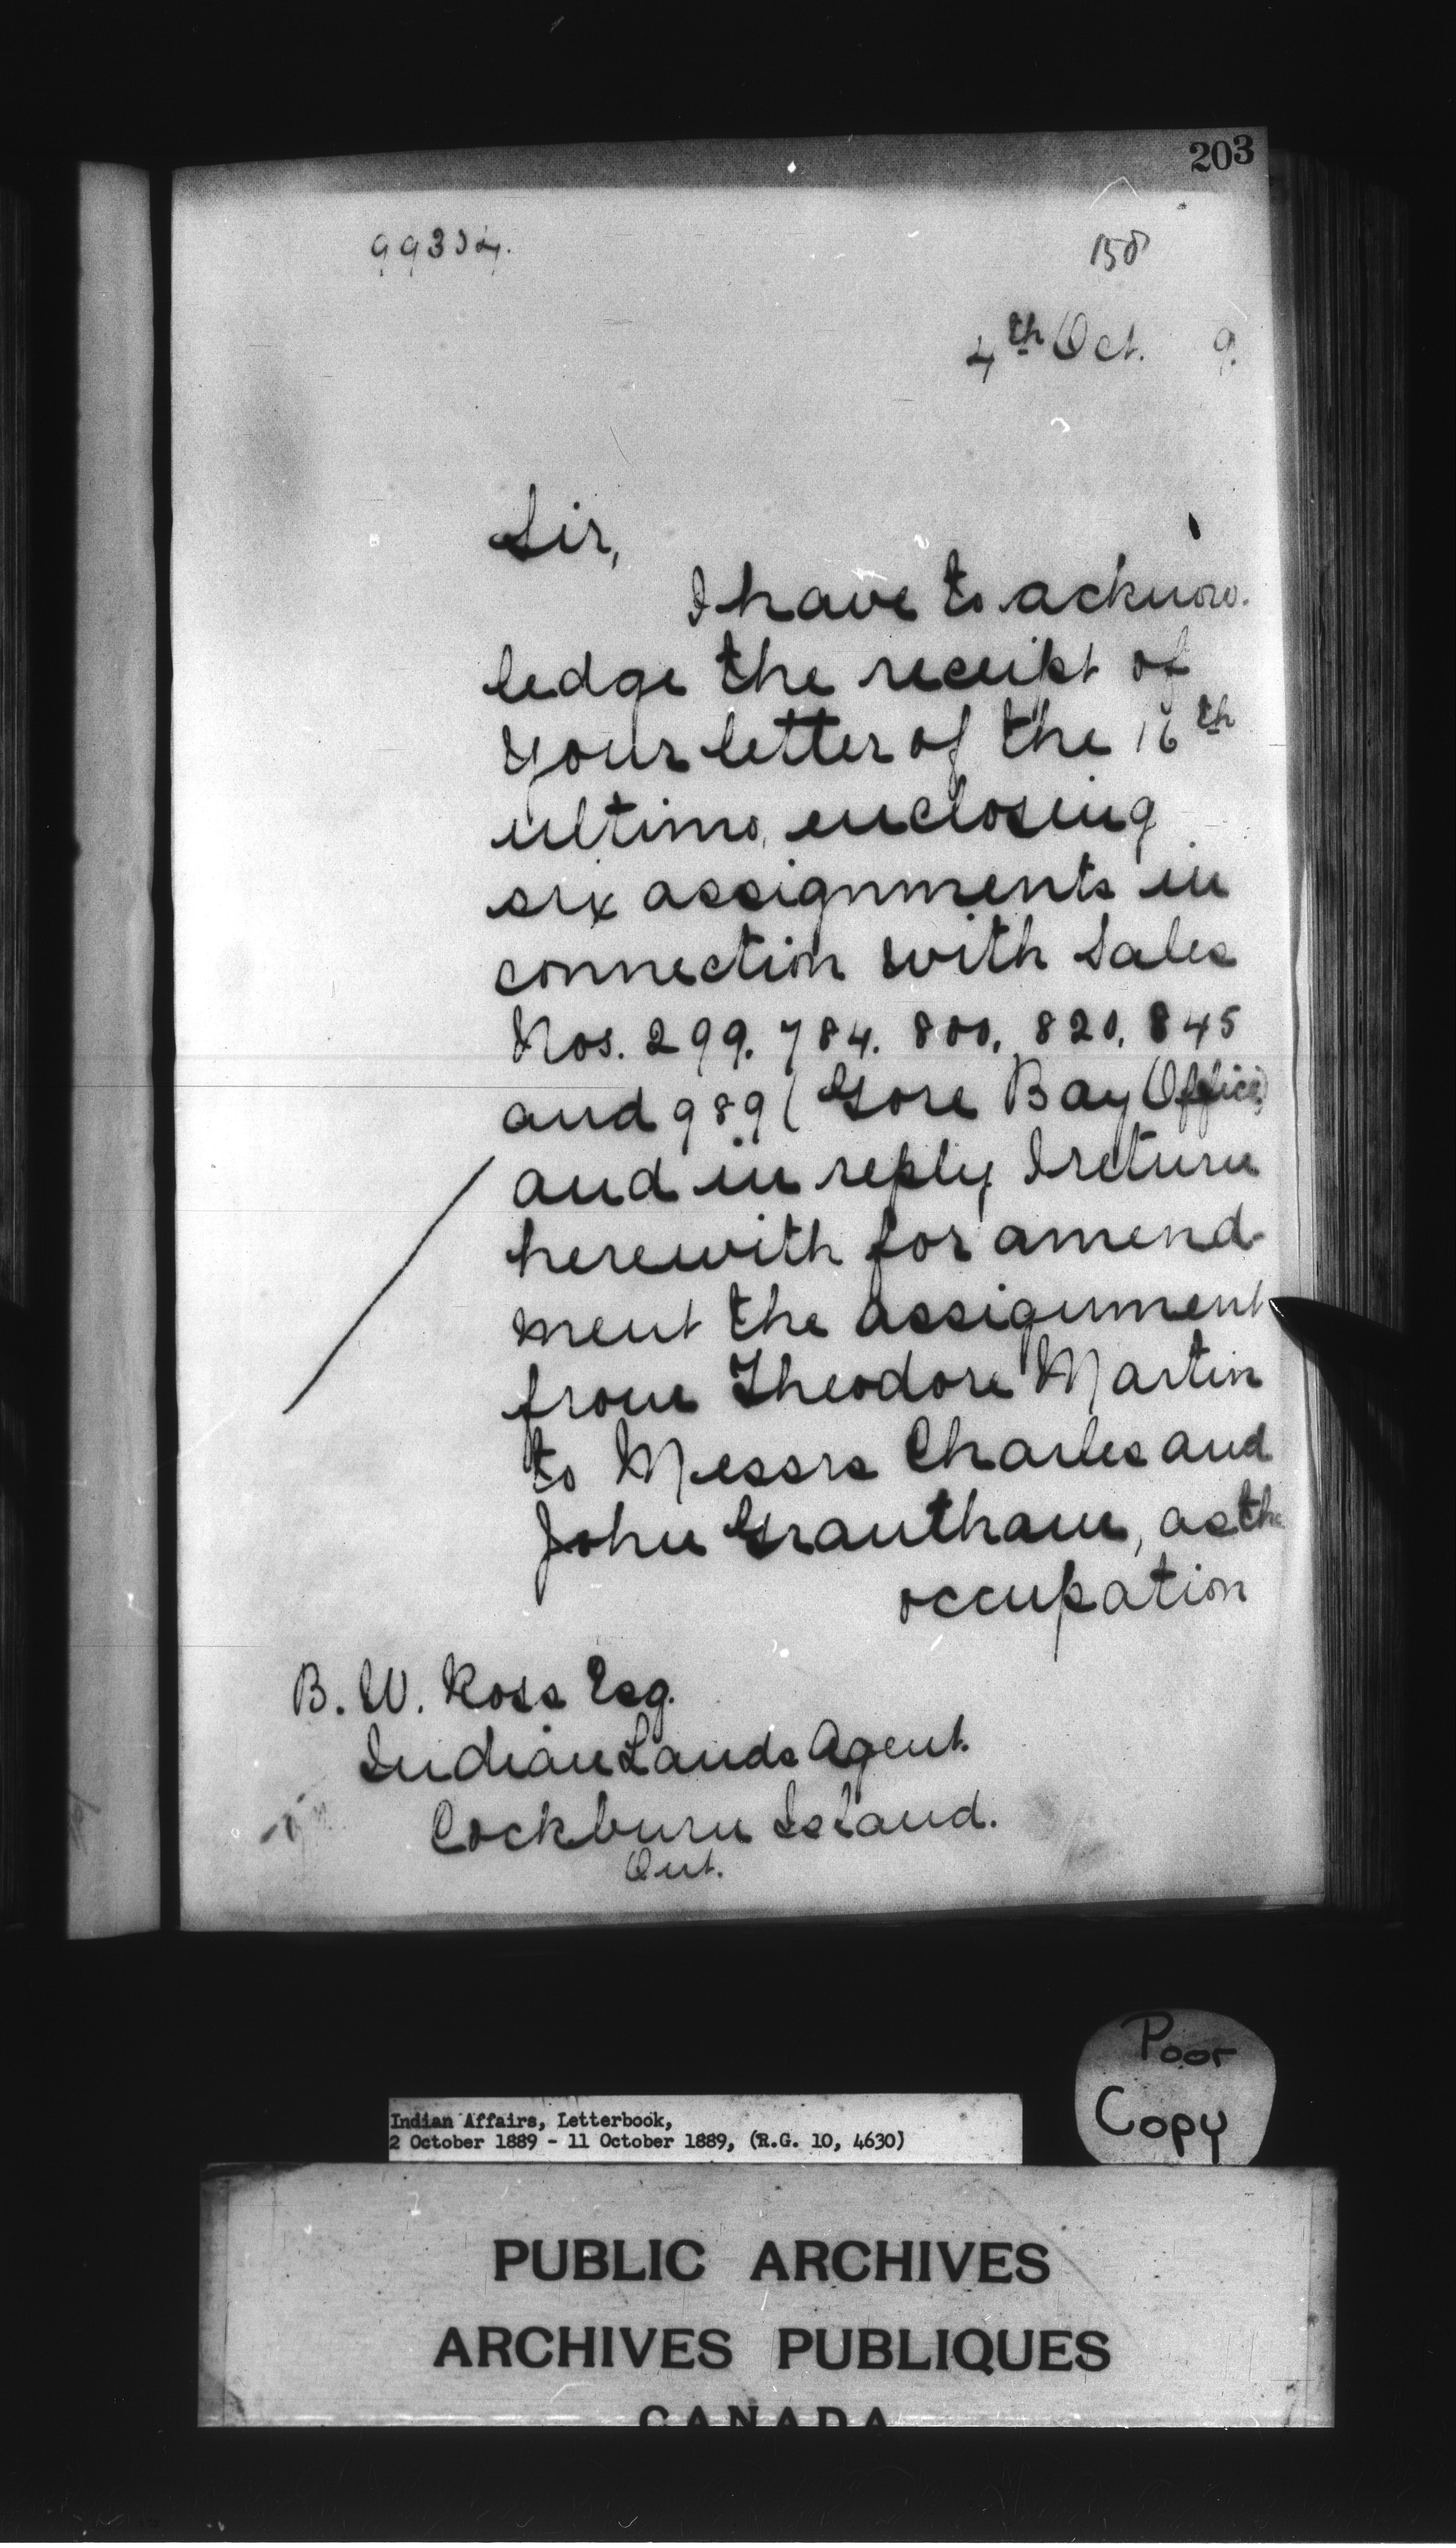 203
99334.
158
4th Oct. 9.
Sir,
I have to acknow-
ledge the receipt of
your letter of the 16th
ultimo, enclosing
six assignments in
connection with Sales
Nos. 299. 784. 800, 820, 845
and 989 (Gore Bay Office)
and in reply I return
herewith for amend-
ment the assignment
from Theodore Martin
to Messrs Charles and
John Grantham, as the
occupation
B. W. Ross Esq.
Indian Lands Agent.
Cockburn Island.
Ont.
Poor
Copy
Indian Affairs, Letterbook,
2 October 1889 - 11 October 1889, (R.G. 10, 4630)
PUBLIC ARCHIVES
ARCHIVES PUBLIQUES
CANADA